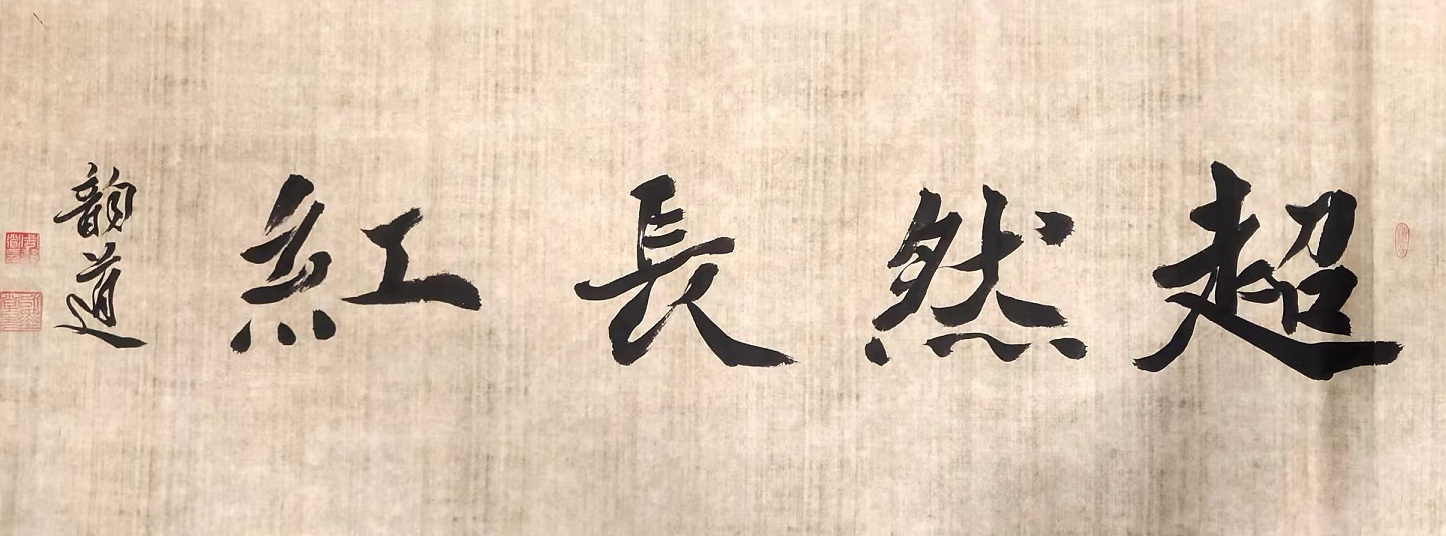 超然長紅
韵道